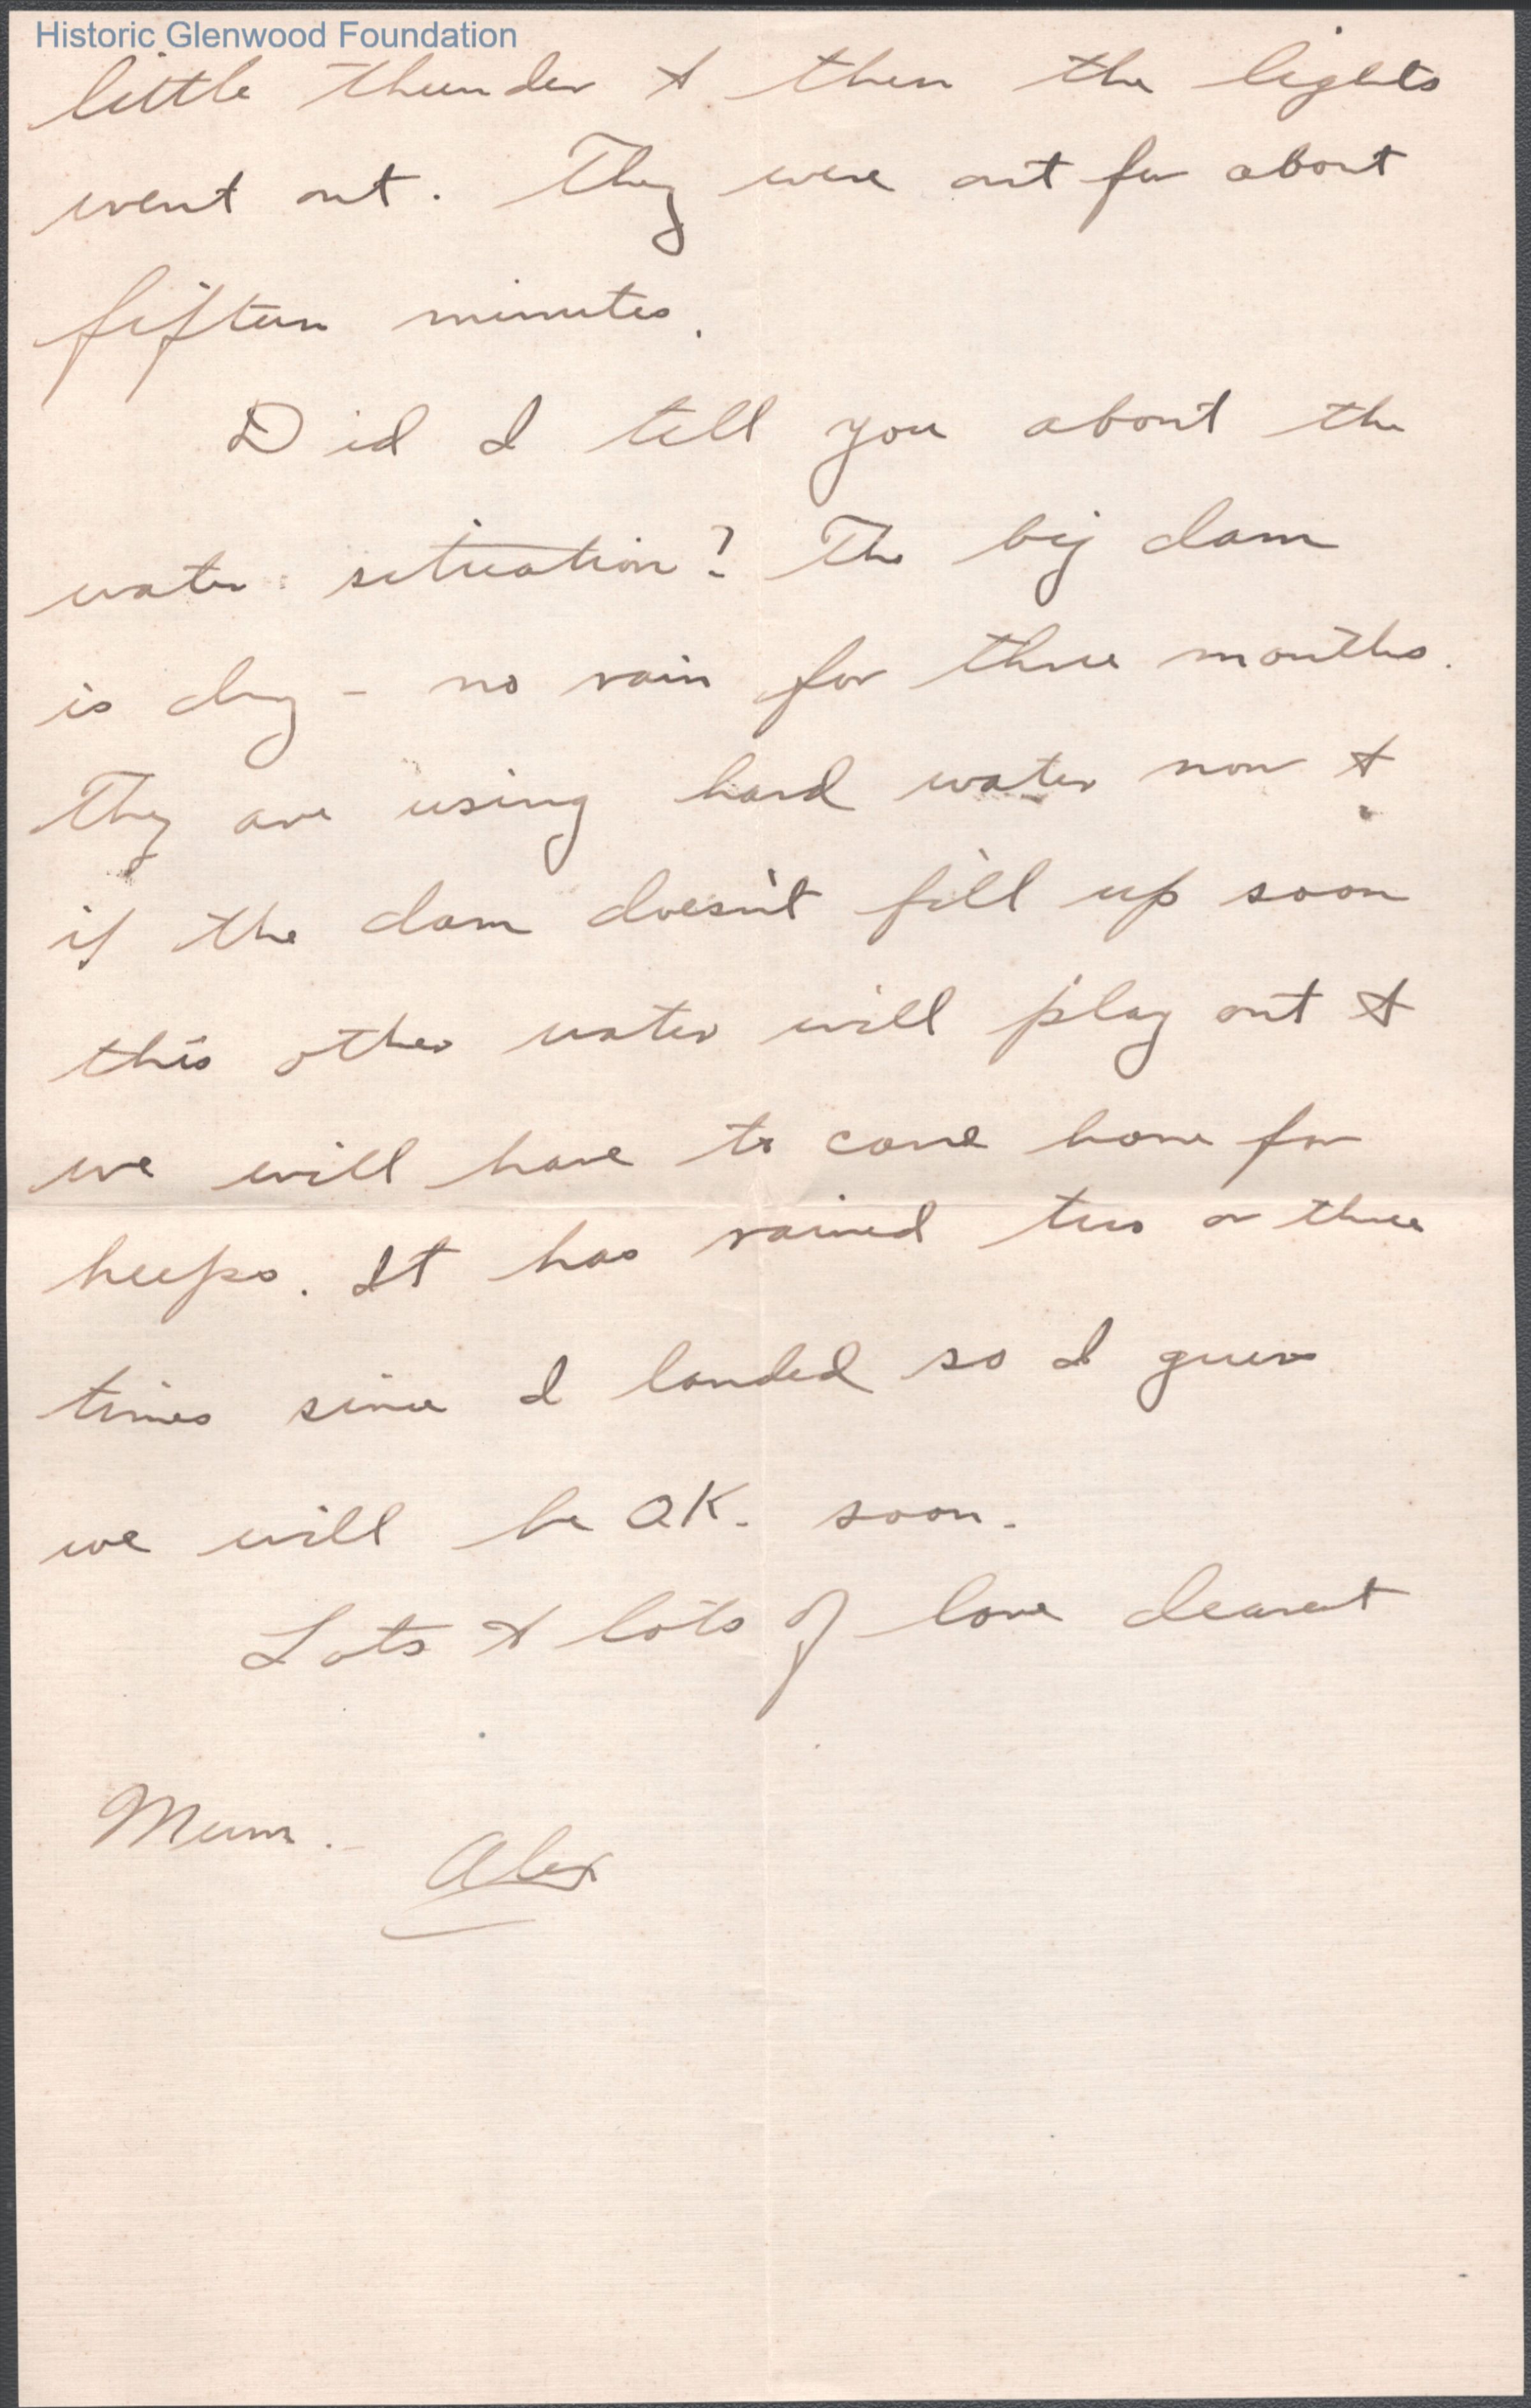 Historic Glenwood Foundation
little thunder & then the lights
went out. They were out for about
fifteen minutes.
Did I tell you about the
water situation? The big dam
is dry - no rain for three months.
They are using hard water now &
if the dam doesn't fill up soon
this other water will play out &
we will have to come home for
keeps. It has rained two or three
times since I landed so I guess
we will be O.K. soon.
Lots & lots of love dearest
Mum.
Alex